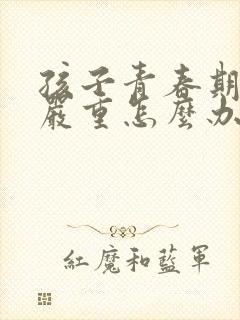 孩子青春期
嚴重怎麼办
紅魔和藍軍